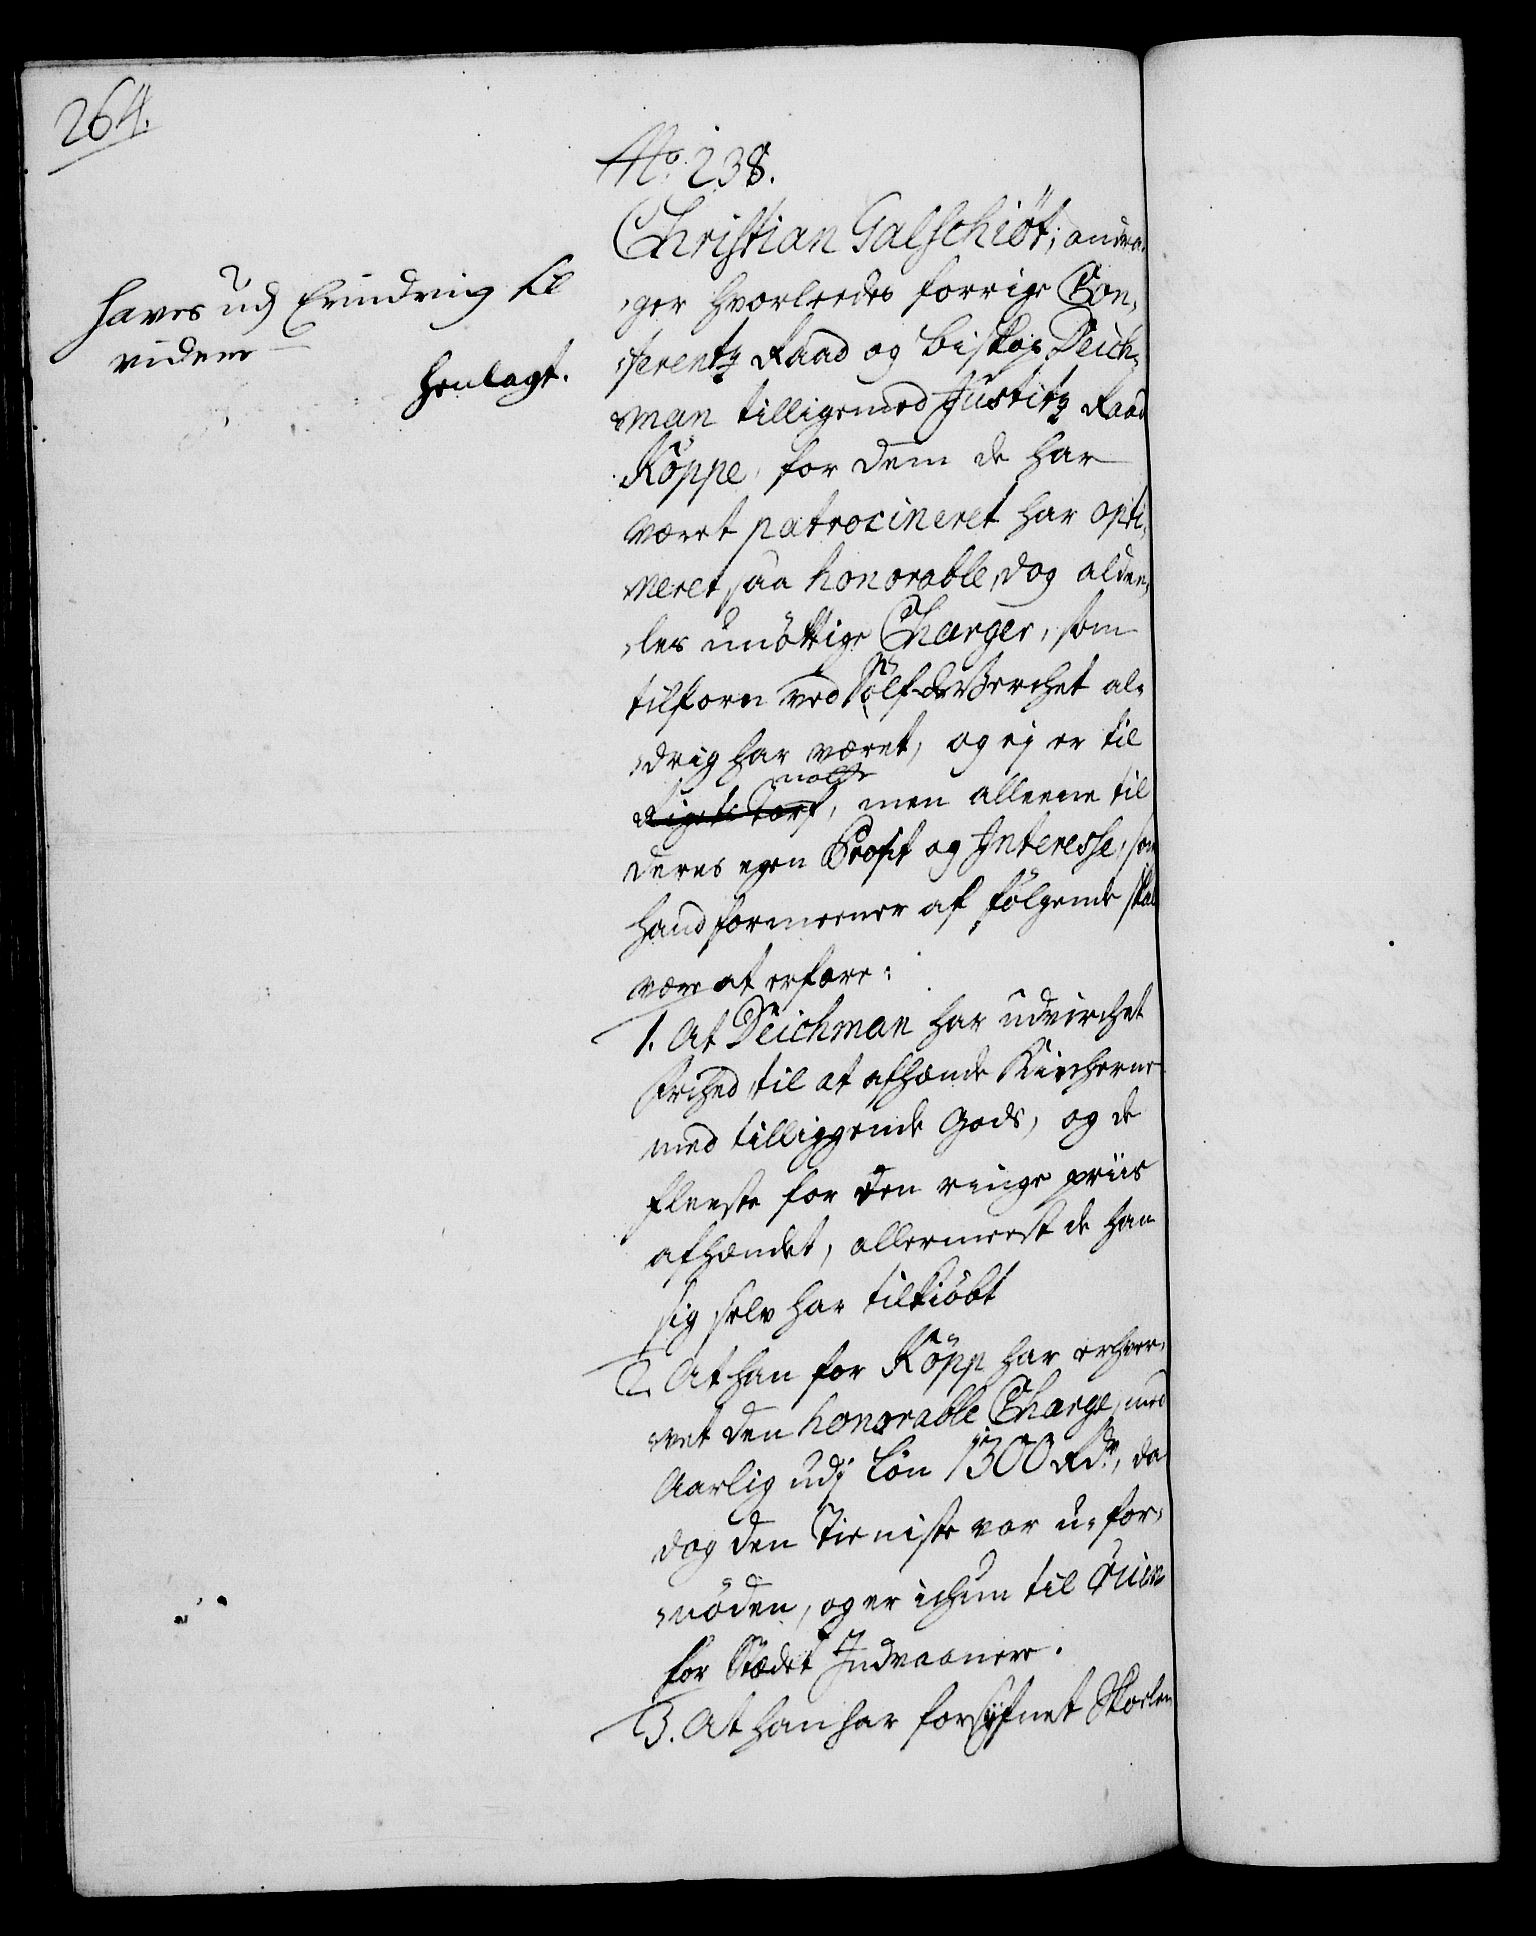 264.
No: 238.
Christian Galschiøt, andra-
ger hvorleedes forrige Con-
ferentz Raad og Biskop Deich-
man tilligemed Justitz Raad
Köppe, for dem de har
været patrocineret har opti-
neret saa honorable, dog alde-
les unöttige Charger, som
tilforn ved Sölf Verchet al-
drig har været, og ej er til
, men alleene til
deres egen Profit og Interesse, som
hand formeener af følgende skal
være at erfare:
1. At Deichman har udvirchet
Frihed til at afhænde Kircherne
med tilliggende Gods, og de
fleeste for den ringe priis
afhændet, allermeest de han
sig selv har tilkiöbt
2. At han for Köpp har erhver-
vet den honorable Charge, med
Aarlig udj Løn 1300 Rdr, da
dog den Tieniste var u-for-
nøden, og er ichun til Ruin
for Stædet Indvaanere.
3. At han har forsÿfnet Skoelen
haves udj Erindring til
videre
Henlagt.